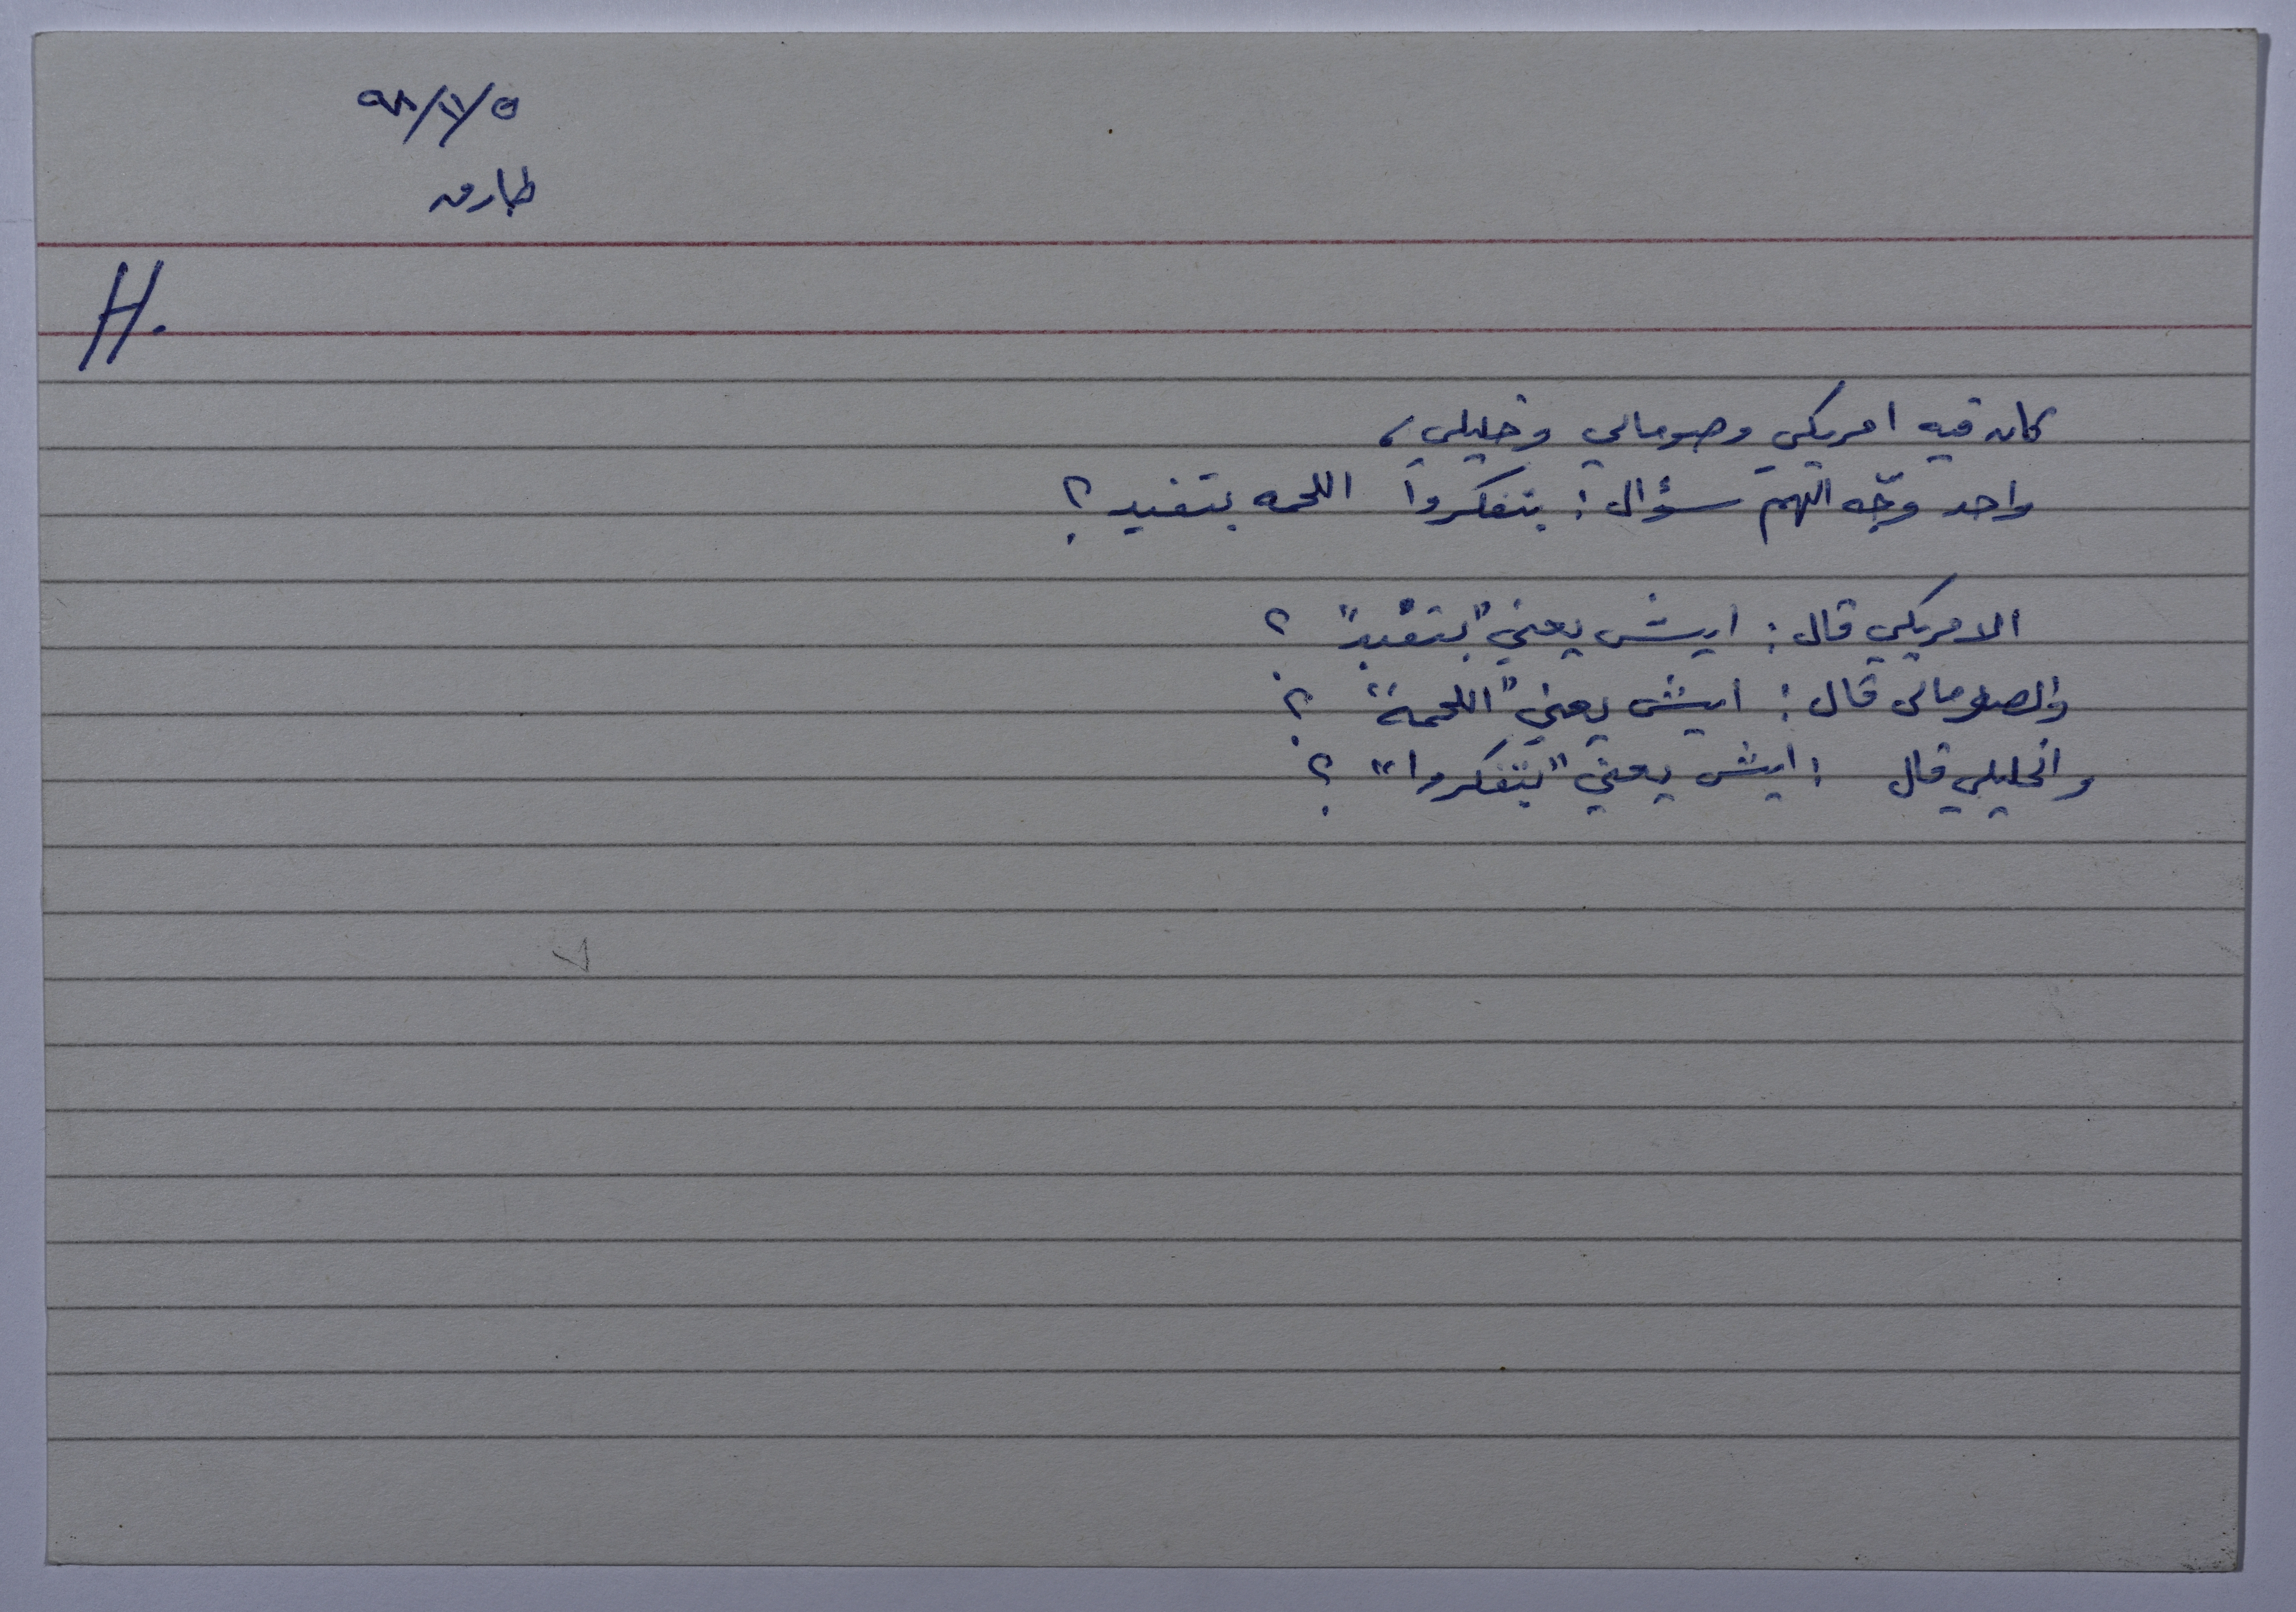 ٩٨/١٢/٥
طارق
H.
كان فيه امريكي وصومالي وخليلي،
واحد وجّه الهم سؤال: بتفكروا اللحمه بتفيد؟
الامريكي قال: ايش يعني "بتفيد" ؟
والصومالي قال: ايش يعني "اللحمة" ؟
والخليلي قال: ايش يعني "بتفكروا" ؟